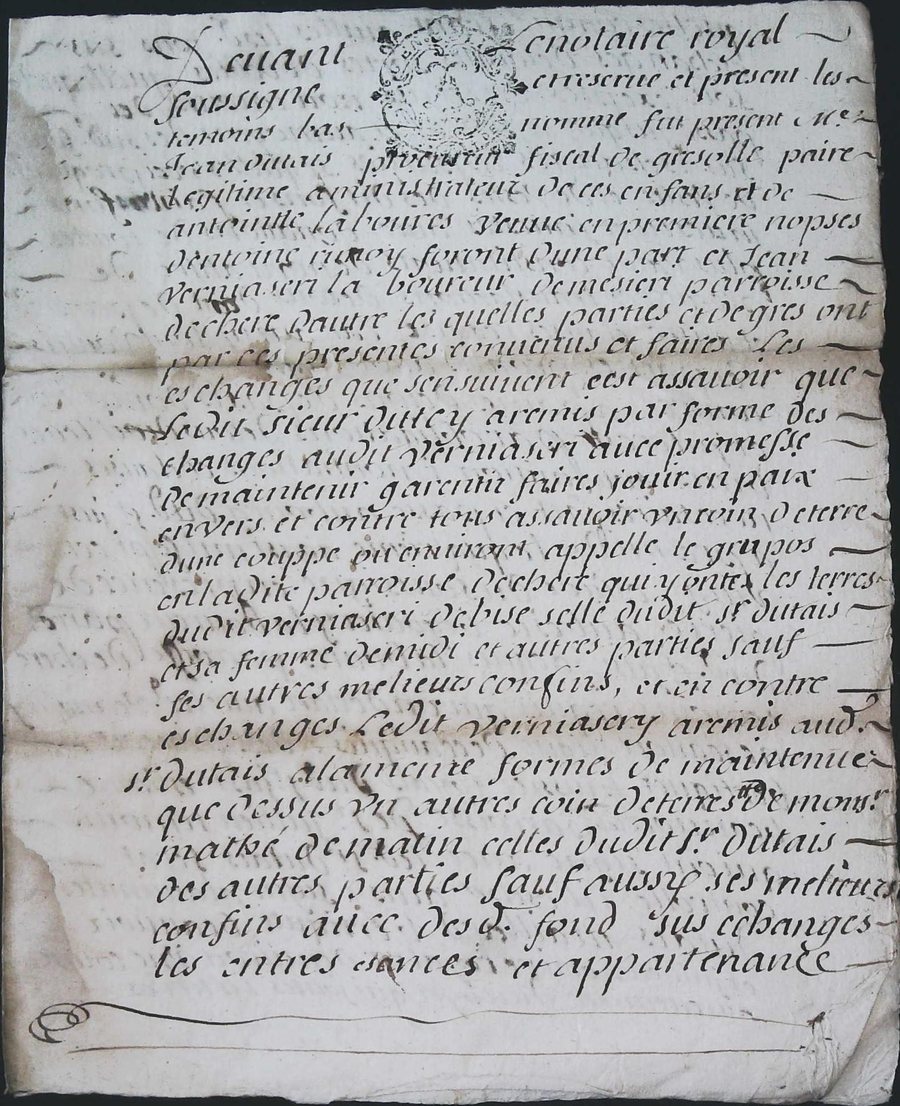 Devant Lenotaire royal
soussigne etreserue et present les
temoins bas nomme fut present Me
Jean dutais procureur fiscal de gresolle paire
Legitime aministrateur de ces enfans et de
antoinette laboures veuve en premiere nopses
dentoine front dune part et Jean
verniaseri la boureur demesieri parroisse
dechere dautre les quelles parties et de gres ont
par ces presentes convenus et faires Les
eschanges que sensuiuent cest assavoir que
Ledit sieur dutey aremis par forme des
changes audit verniaseri avec promesse
de maintenir garentir faires jouir en paix
envers et contre tous assavoir vncoin deterre
dune couppe ou environt appelle le grupos
enladite parroisse dechere qui les terres
dudit verniaseri debise selle dudit sr dutais
et sa femme demidi et autres parties sauf
ses autres melieurs confins, et en contre
eschanges Ledit verniasery aremis aud.
sr dutais alameme formes de maintenue
que dessus vn autres coin deterres de monsr
mathé de matin celles dudit sr dutais
des autres parties sauf aussy ses melieurs
confins avec desd. fond sus echanges
les entres et appartenance